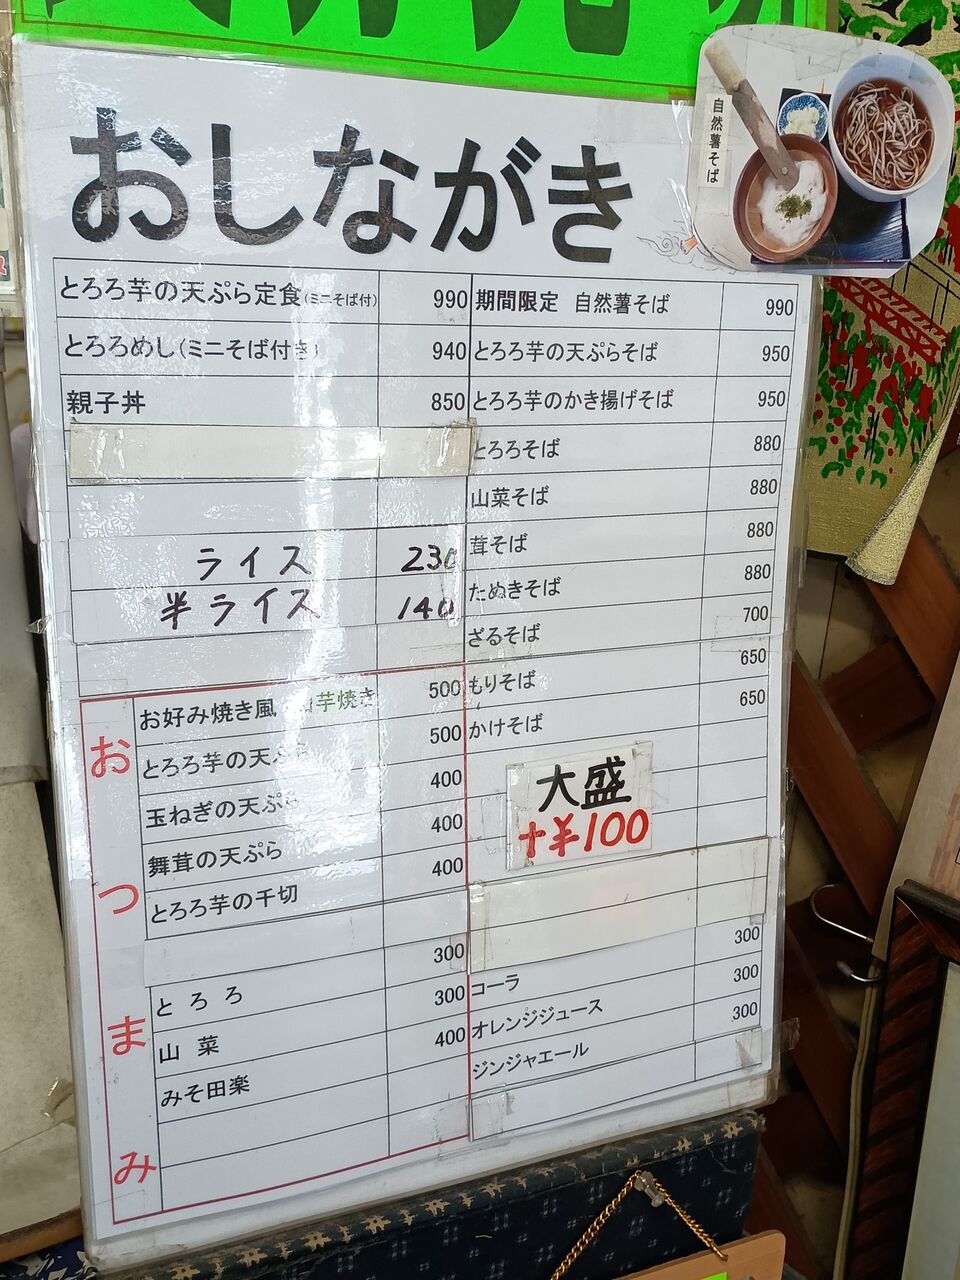 おしながき
自然薯そば
とろろ芋の天ぷら定食(ミニそば付) 990
とろろめし(ミニそば付き) 940
親子丼 850
ライス 230
半ライス 140
おつまみ
お好み焼き風 山芋焼き 500
とろろ芋の天ぷら 500
玉ねぎの天ぷら 400
舞茸の天ぷら 400
とろろ芋の千切 400
とろろ 300
山菜 300
みそ田楽 400
期間限定 自然薯そば 990
とろろ芋の天ぷらそば 950
とろろ芋のかき揚げそば 950
とろろそば 880
山菜そば 880
茸そば 880
たぬきそば 880
ざるそば 700
もりそば 650
かけそば 650
大盛
+¥100
コーラ 300
オレンジジュース 300
ジンジャエール 300